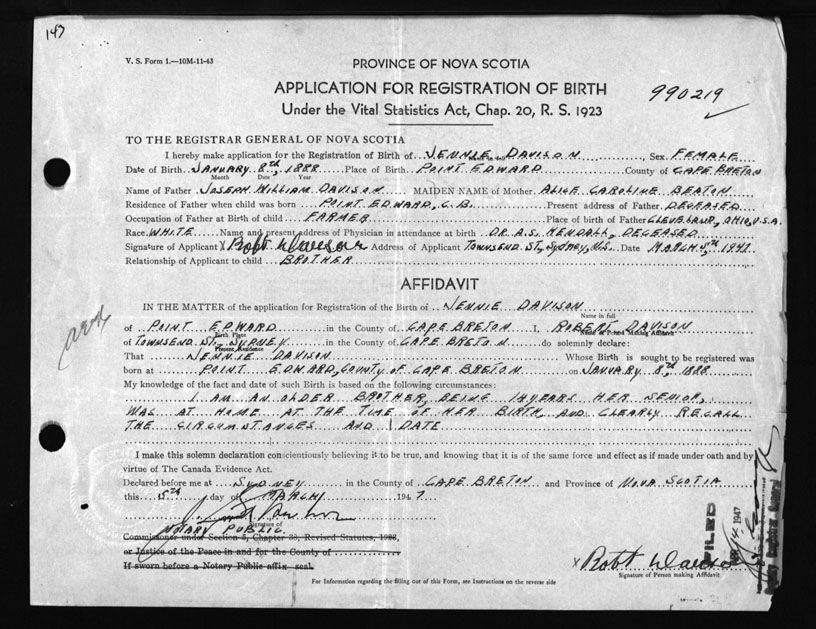 147
V. S. Form 1.—10M-11-43
PROVINCE OF NOVA SCOTIA
APPLICATION FOR REGISTRATION OF BIRTH
990219
Under the Vital Statistics Act, Chap. 20, R. S. 1923
TO THE REGISTRAR GENERAL OF NOVA SCOTIA
I hereby make application for the Registration of Birth of JENNIE DAVISON Sex FEMALE
Date of Birth JANUARY 8th, 1888 Place of Birth POINT EDWARD County of CAPE BRETON
Month Date Year
Name of Father JOSEPH WILLIAM DAVISON MAIDEN NAME of Mother ALICE CAROLINE BEATON
Residence of Father when child was born POINT EDWARD, C.B. Present address of Father DECEASED
Occupation of Father at Birth of child FARMER Place of birth of Father CLEVELAND, OHIO, U.S.A.
Race WHITE Name and present address of Physician in attendance at birth DR. A.S. KENDALL, DECEASED
Signature of Applicant X Robt Davison Address of Applicant TOWNSEND ST, SYDNEY, N.S. Date MARCH 5th 1947
Relationship of Applicant to child BROTHER
AFFIDAVIT
IN THE MATTER of the application for Registration of the Birth of JENNIE DAVISON
Name in full
of POINT EDWARD in the County of CAPE BRETON I, ROBERT DAVISON
Birth Place Name of Person Making Affidavit
of TOWNSEND ST. SYDNEY in the County of CAPE BRETON do solemnly declare:
Present Residence
That JENNIE DAVISON Whose Birth is sought to be registered was
born at POINT EDWARD, COUNTY OF CAPE BRETON on JANUARY 8th, 1888
My knowledge of the fact and date of such Birth is based on the following circumstances:
I AM AN OLDER BROTHER, BEING 14 YEARS HER SENIOR,
WAS AT HOME AT THE TIME OF HER BIRTH, AND CLEARLY RECALL
THE CIRCUMSTANCES AND DATE
I make this solemn declaration conscientiously believing it to be true, and knowing that it is of the same force and effect as if made under oath and by
virtue of The Canada Evidence Act.
Declared before me at SYDNEY in the County of CAPE BRETON and Province of NOVA SCOTIA
this 5th day of MARCH 1947
Signature of
NOTARY PUBLIC
Commissioner under Section 5, Chapter 38, Revised Statutes, 1923,
or Justice of the Peace in and for the County of
If sworn before a Notary Public affix seal.
FILED
14 1947
X Robt Davison
Signature of Person making Affidavit
For Information regarding the filling out of this Form, see Instructions on the reverse side